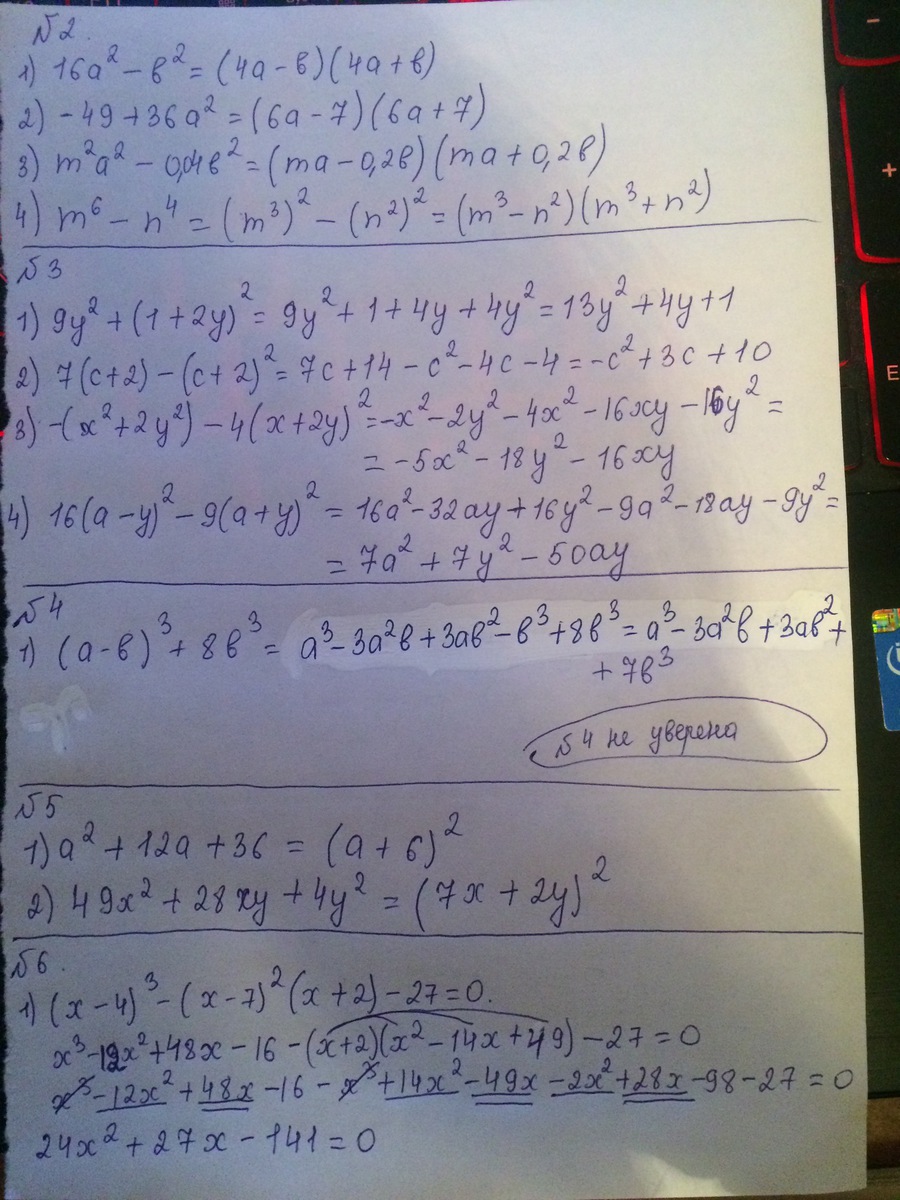 №2.
1) 16a² - b² = (4a - b)(4a + b)
2) - 49 + 36a² = (6a - 7)(6a + 7)
3) m²a² - 0,04b² = (ma - 0,2b)(ma + 0,2b)
4) m⁶ - n⁴ = (m³)² - (n²)² = (m³ - n²)(m³ + n²)
№3
1) 9y² + (1 + 2y)² = 9y² + 1 + 4y + 4y² = 13y² + 4y + 1
2) 7(c+2) - (c+2)² = 7c + 14 - c² - 4c - 4 = -c² + 3c + 10
3) -(x² + 2y²) - 4(x + 2y)² = -x² - 2y² - 4x² - 16xy - 16y² =
= -5x² - 18y² - 16xy
4) 16(a - y)² - 9(a + y)² = 16a² - 32ay + 16y² - 9a² - 18ay - 9y² =
= 7a² + 7y² - 50ay
№4
1) (a - b)³ + 8b³ = a³ - 3a²b + 3ab² - b³ + 8b³ = a³ - 3a²b + 3ab² +
+ 7b³
№4 не уверена
№5
1) a² + 12a + 36 = (a + 6)²
2) 49x² + 28xy + 4y² = (7x + 2y)²
№6.
1) (x - 4)³ - (x - 7)²(x + 2) - 27 = 0.
x³ - 12x² + 48x - 16 - (x+2)(x² - 14x + 49) - 27 = 0
x³ - 12x² + 48x - 16 - x³ + 14x² - 49x - 2x² + 28x - 98 - 27 = 0
24x² + 27x - 141 = 0
-
+
E